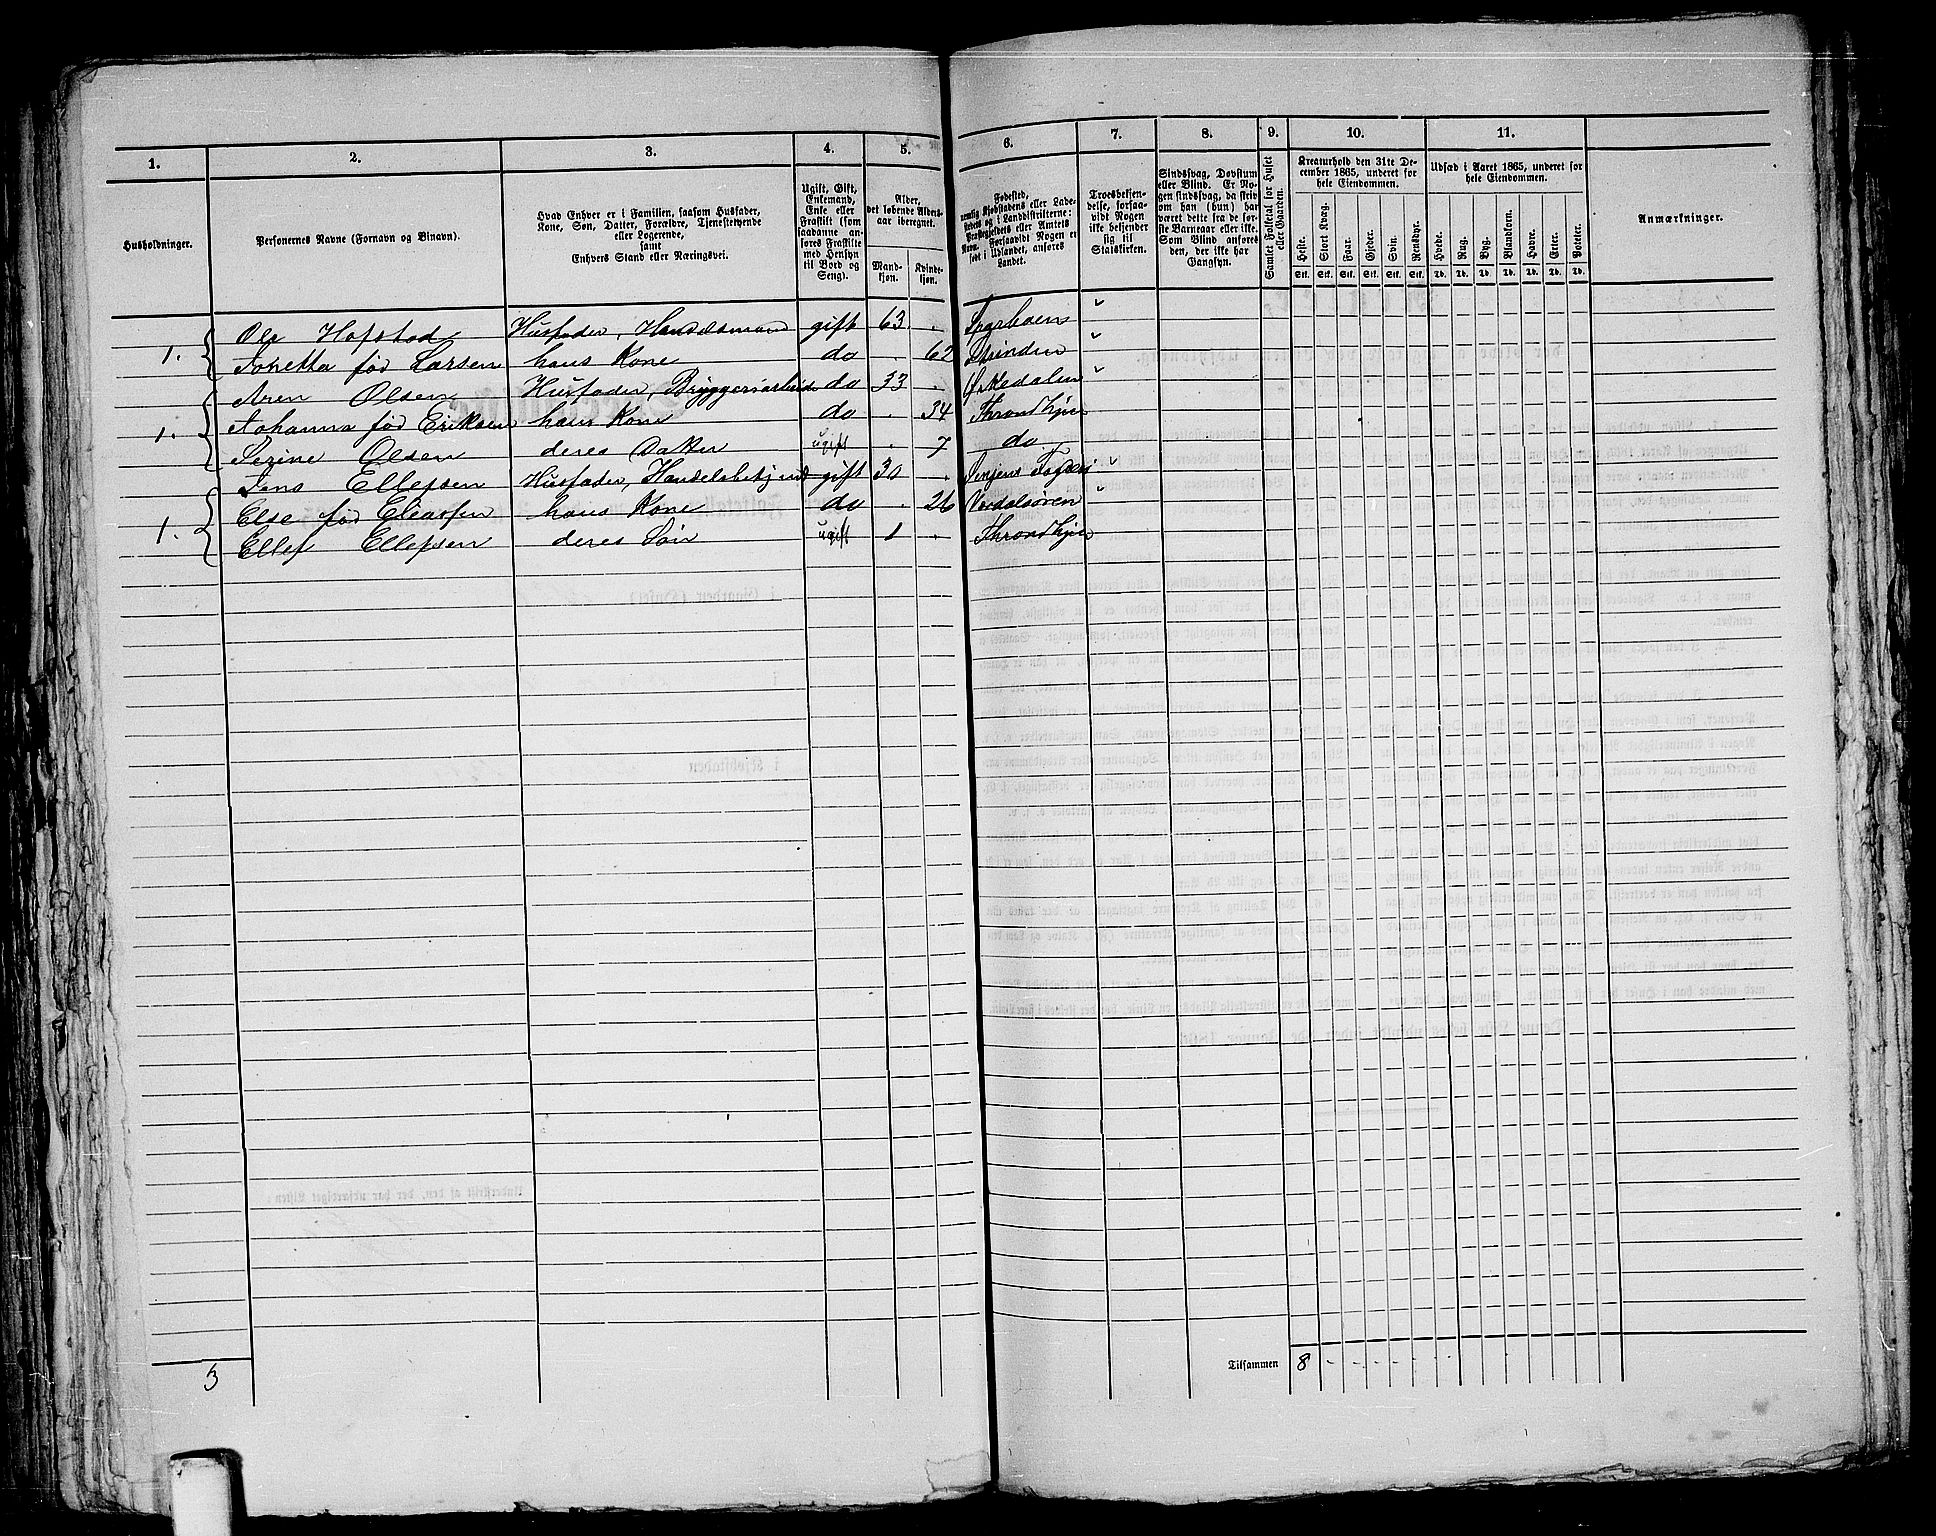 1. 2. 3. 4. 5. 6. 7. 8. 9. 10. 11.
Husholdninger.
Personernes Navne (Fornavn og Binavn).
Hvad Enhver er i Familien, saasom Husfader,
Kone, Søn, Datter, Forældre, Tjenestetyende
eller Logerende,
samt
Enhvers Stand eller Næringsvei.
Ugift, Gift,
Enkemand,
Enke eller
Fraskilt (som
saadanne an-
føres Fraskilte
med Hensyn
til Bord og
Seng).
Alder,
det løbende Alders-
aar iberegnet.
Mand-
kjøn.
Kvinde-
kjøn.
Fødested,
nemlig Kjøbstadens eller Lade-
stedets og i Landdistrikterne:
Præstegjeldets eller Amtets
Navn. Forsaavidt Nogen er
født i Udlandet, anføres
Landet.
Troesbekjen-
delse, forsaa-
vidt Nogen
ikke bekjender
sig til
Statskirken.
Sindssvag, Døvstum
eller Blind. Er No-
gen sindssvag, da skriv
om han (hun) har
været dette fra de før-
ste Barneaar eller ikke.
Som Blind anføres
den, der ikke har
Gangsyn.
Samlet Folketal for Huset
eller Gaarden.
Kreaturhold den 31te De-
cember 1865, underet for
hele Eiendommen.
Heste. Stort Kvæg. Faar. Gjeder. Svin. Rensdyr.
Stk. Stk. Stk. Stk. Stk. Stk.
Udsæd i Aaret 1865, underet for
hele Eiendommen.
Hvede. Rug. Byg. Blandkorn. Havre. Erter. Poteter.
Td. Td. Td. Td. Td. Td. Td.
Anmærkninger.
1. Ole Hofstad Husfader, Handelsmand gift 63 .
Sonetta fød Larsen hans Kone do . 62 Strinden
1. Aren Olsen Husfader, Bryggeriarbeid do 33 . Ørkedalen
Johanna fød Eriksen hans Kone do . 34 Throndhjem
Serine Olsen deres Datter ugift . 7 do
1. Jens Ellefsen Husfader, Handelsbetjent gift 30 . Senjens Fogderi
Else fød Eliassen hans Kone do . 26 Værdalsøren
Ellef Ellefsen deres Søn ugift 1 . Throndhjem
3 Tilsammen 8